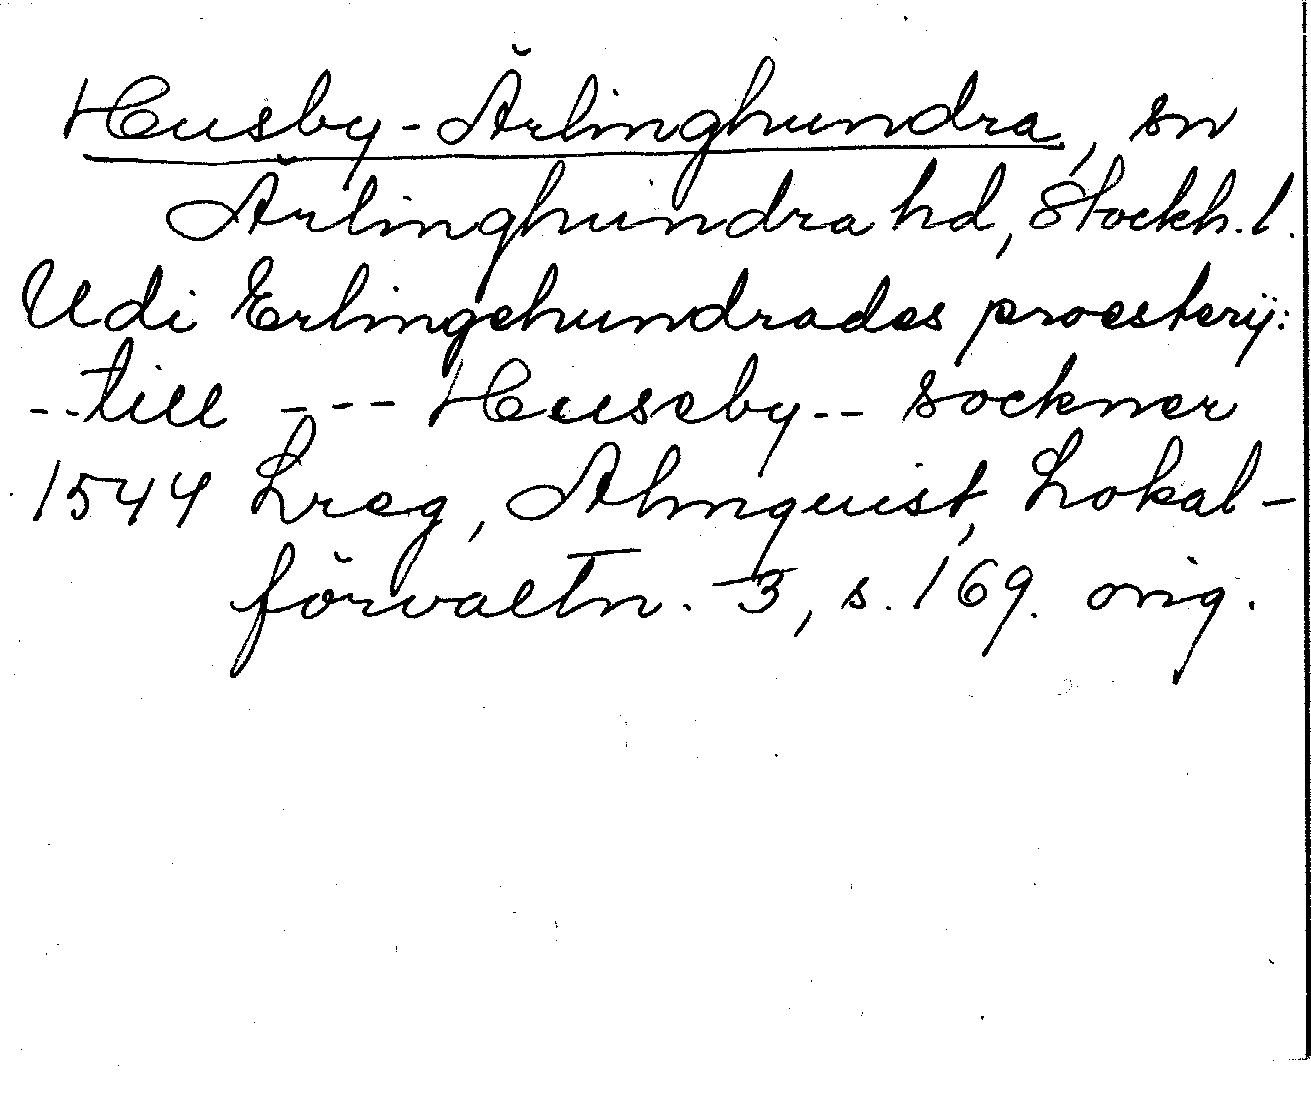 Husby-Ärlinghundra, sn
Ärlinghundra hd, Stockh. l.
Udi Erlingehundrades proesterij:
--till --- Huseby-- sockner
1544 Lreg, Almquist, Lokal-
förvaltn. 3, s. 169. orig.